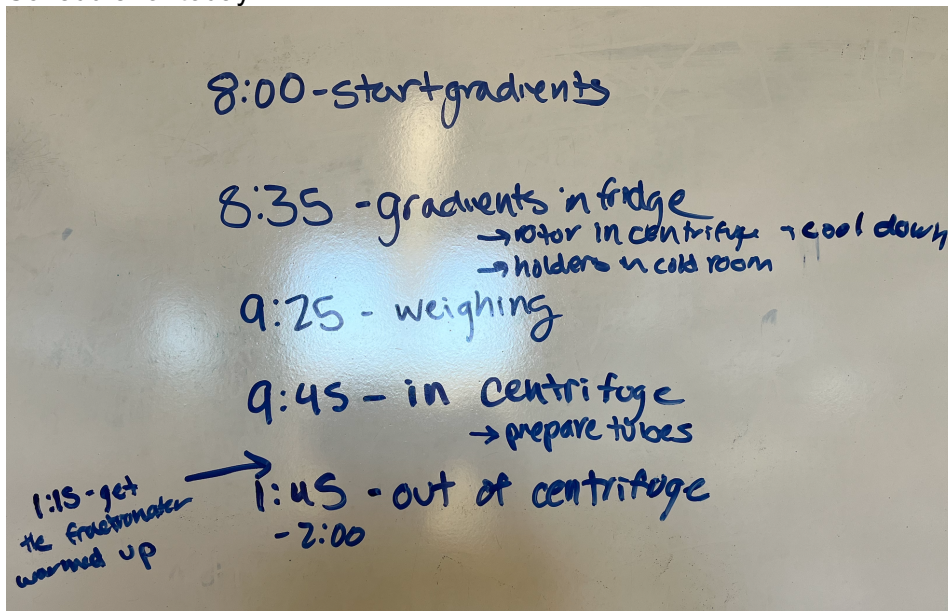 8:00-start gradients
8:35 - gradients in fridge
→ rotor in centrifuge → cool down
→ holders in cold room
9:25 - weighing
9:45 - in centrifuge
→ prepare tubes
1:15-get
the fractionater
warmed up
1:45 - out of centrifuge
- 2:00